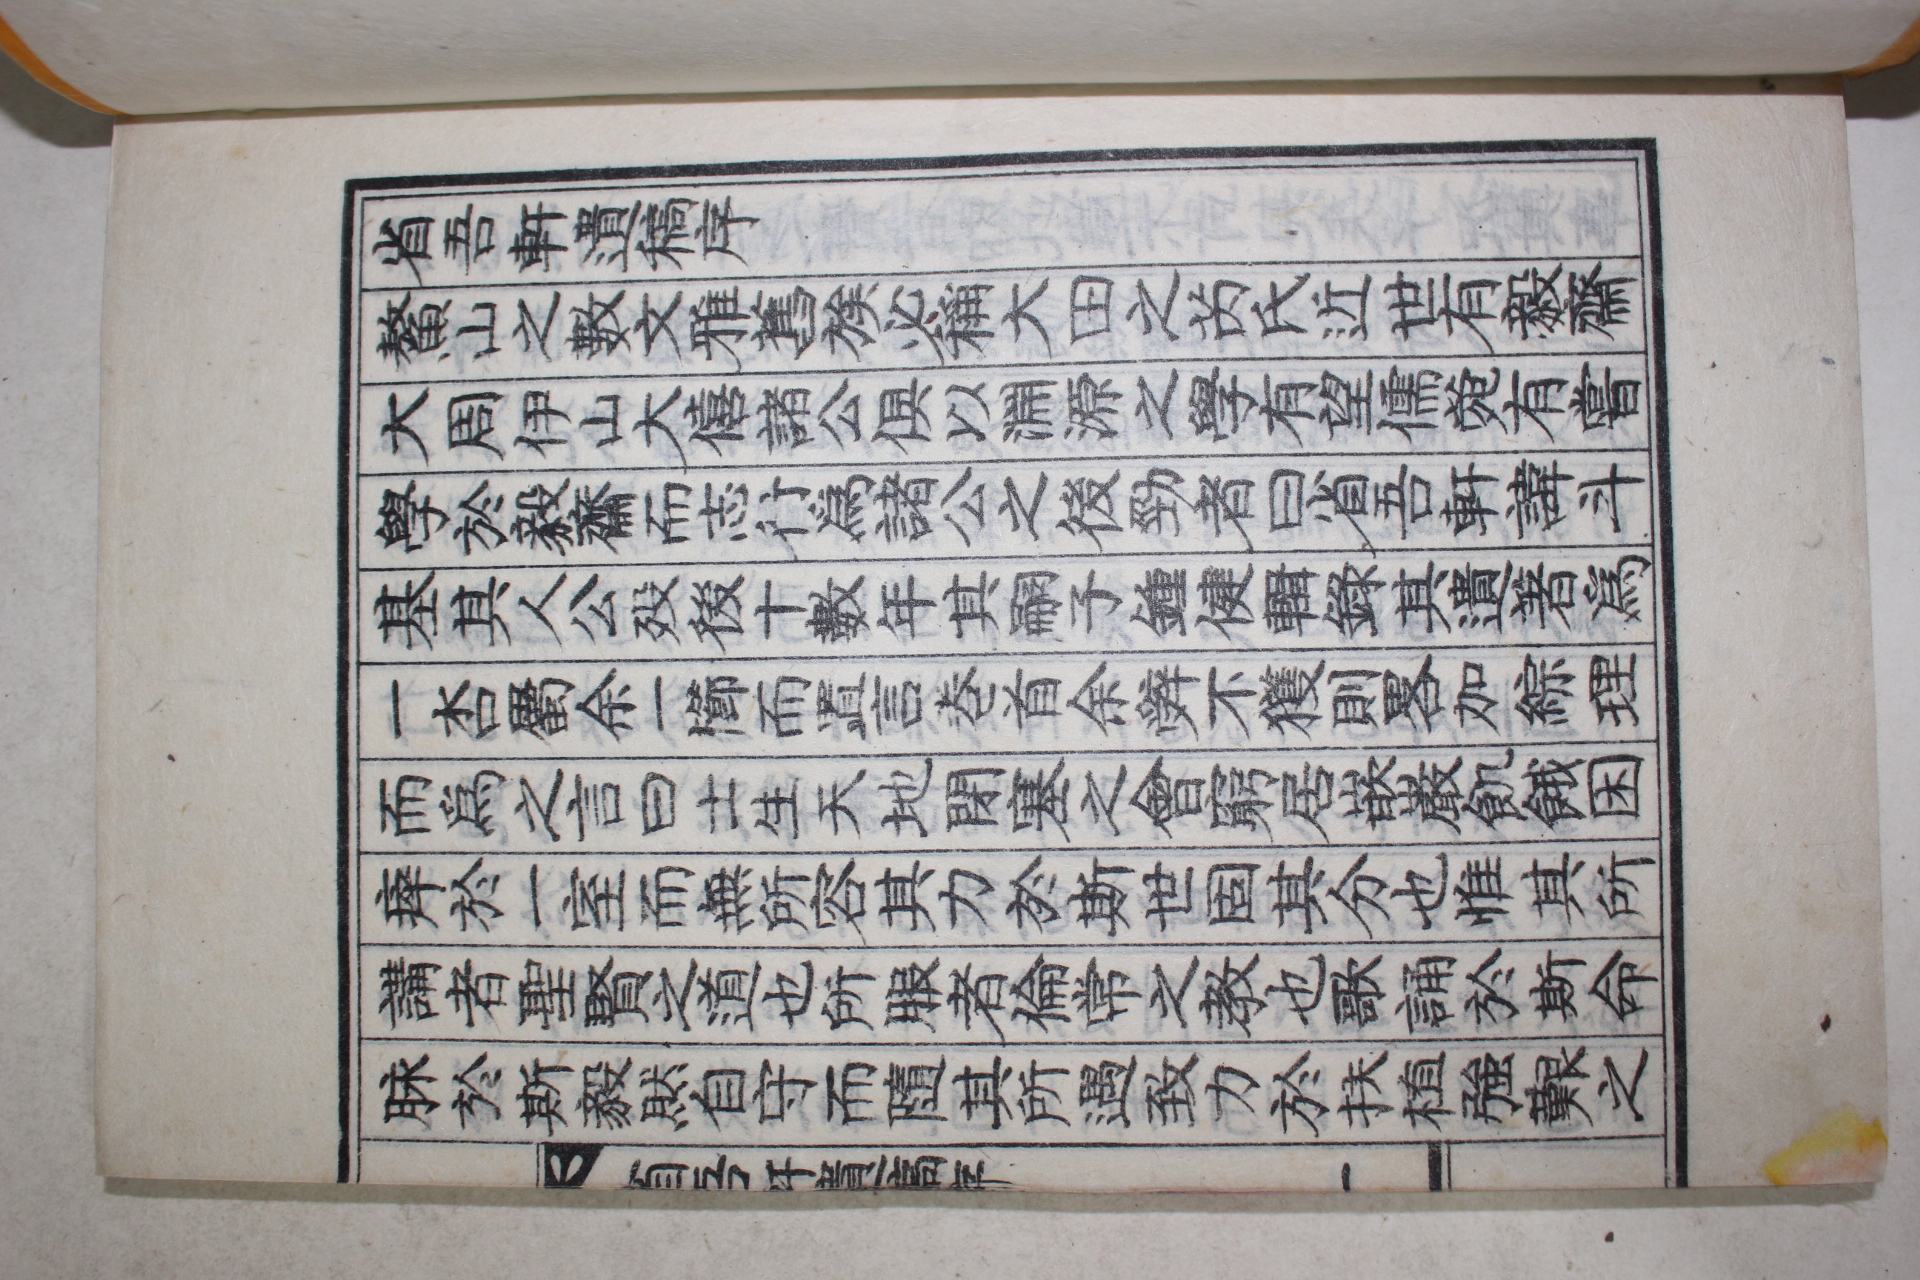 省吾軒遺稿序
鰲山之數文雅舊族必稱大田之芮氏近世有毅齋
大周伊山大僖諸公俱以淵源之學有望儒菀有嘗
學於毅齋而志行爲諸公之後勁者曰省吾軒諱斗
基其人公歿後十數年其嗣子鍾健輯錄其遺著爲
一杏屬余一櫛而置言卷首余辭不獲則畧加綜理
而爲之言曰士生天地閉塞之會窮居嵌巖飢餓困
瘁於一室而無所容其力於斯世固其分也惟其所
講者聖賢之道也所服者倫常之敎也歌誦於斯命
脉於斯毅然自守而隨其所遇致力於扶植強艱之
省吾軒遺稿序
一